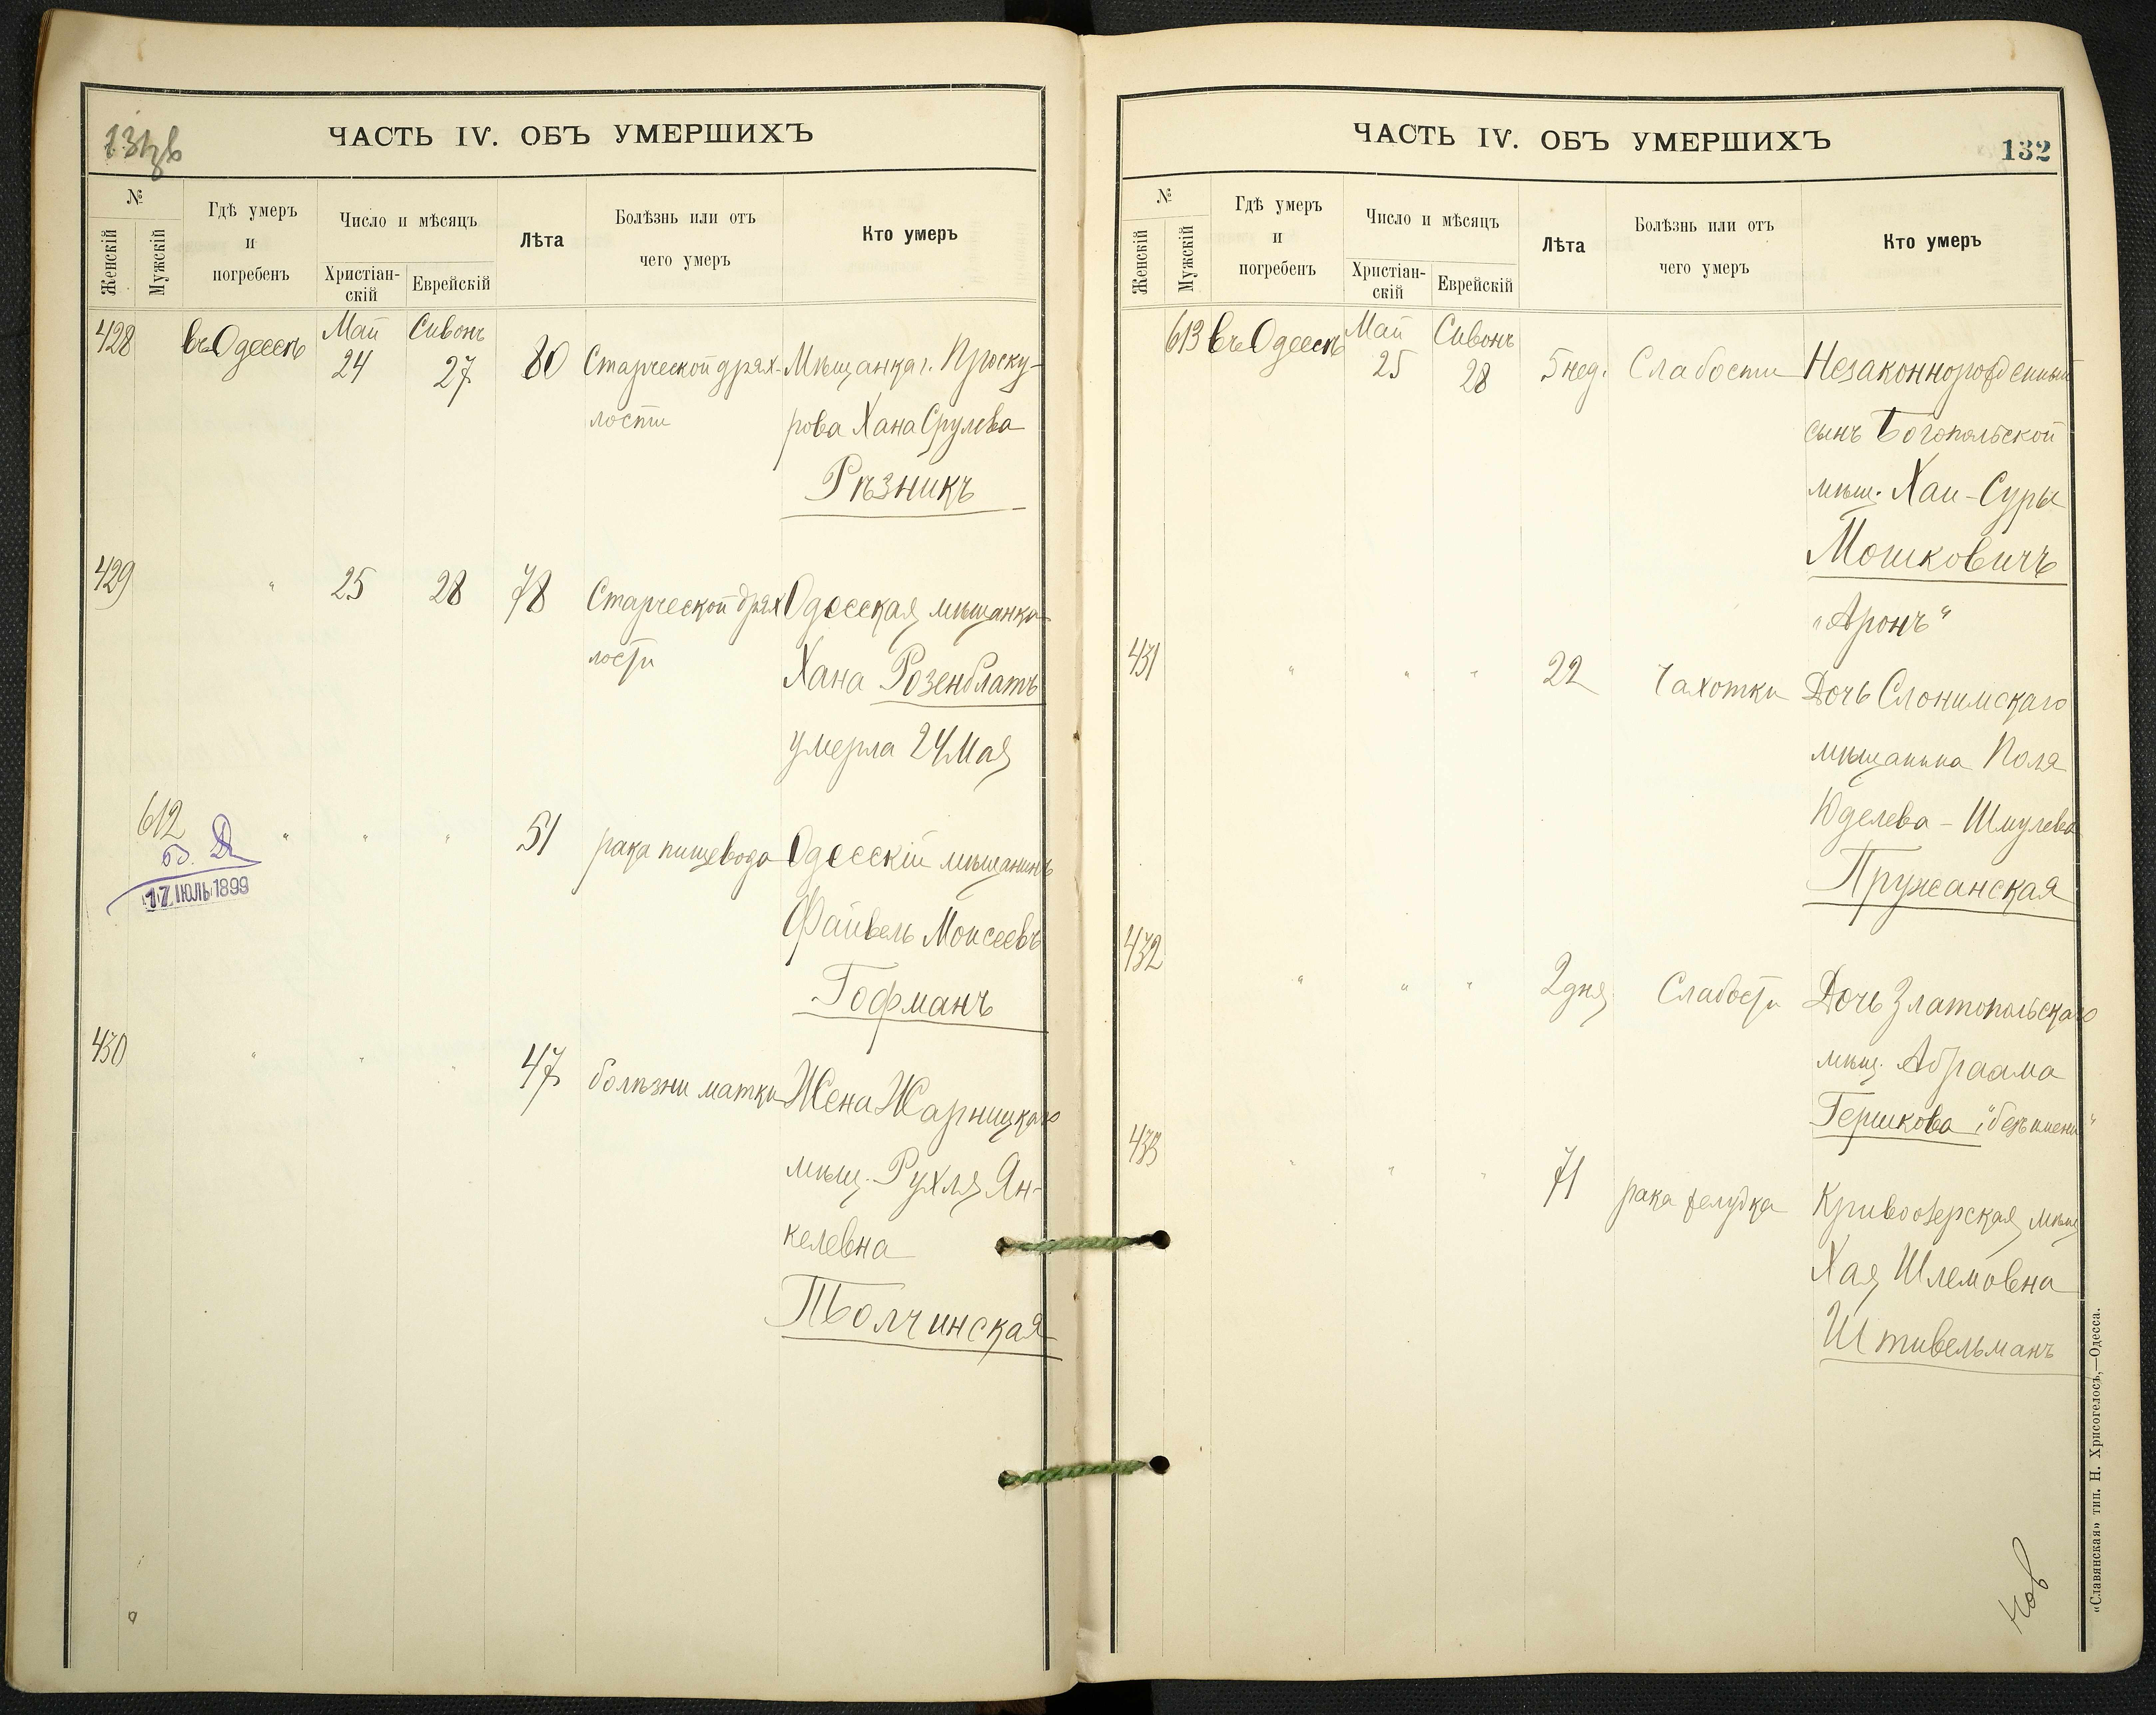 ЧАСТЬ IV. ОБЪ УМЕРШИХЪ
№
Женскій
Мужскій
Гдѣ умеръ
и
погребенъ
Число и мѣсяцъ
Христіан-
скій
Еврейскій
Лѣта
Болѣзнь или отъ
чего умеръ
Кто умеръ
428 въ Одессѣ Май 24 Сивонъ 27 80 Старческой дрях- Мѣщанка г. Проску-
лости рова Хана Срулева
Рѣзникъ
429 " 25 28 78 Старческой дрях Одесская мѣщанка
лости Хана Розенблатъ
умерла 24 Мая
612 " " " 51 рака пищевода Одесскій мѣщанинъ
17 ІЮЛЬ 1899
Файвель Моисеевъ
Гофманъ
430 " " " 47 болѣзни матки Жена Жарницкаго
мѣщ. Рухля Ян-
келевна
Полчинская
ЧАСТЬ IV. ОБЪ УМЕРШИХЪ
132
№
Женскій
Мужскій
Гдѣ умеръ
и
погребенъ
Число и мѣсяцъ
Христіан-
скій
Еврейскій
Лѣта
Болѣзнь или отъ
чего умеръ
Кто умеръ
613 въ Одессѣ Май 25 Сивонъ 28 5 нед. Слабости Незаконнорожденный
сынъ Богопольской
мѣщ. Хаи-Суры
Мошковичъ
"Аронъ"
431 " " " 22 Чахотки Дочь Слонимскаго
мѣщанина Поля
Юделева-Шмулева
Пружанская
432 " " " 2 дня Слабости Дочь Златопольскаго
мѣщ. Абраама
Гершкова "безъ имени"
433 " " " 71 рака желудка Кривоозерская мѣщ
Хая Шлемовна
Штивельманъ
«Славянская» тип. Н. Хрисогелосъ,—Одесса.